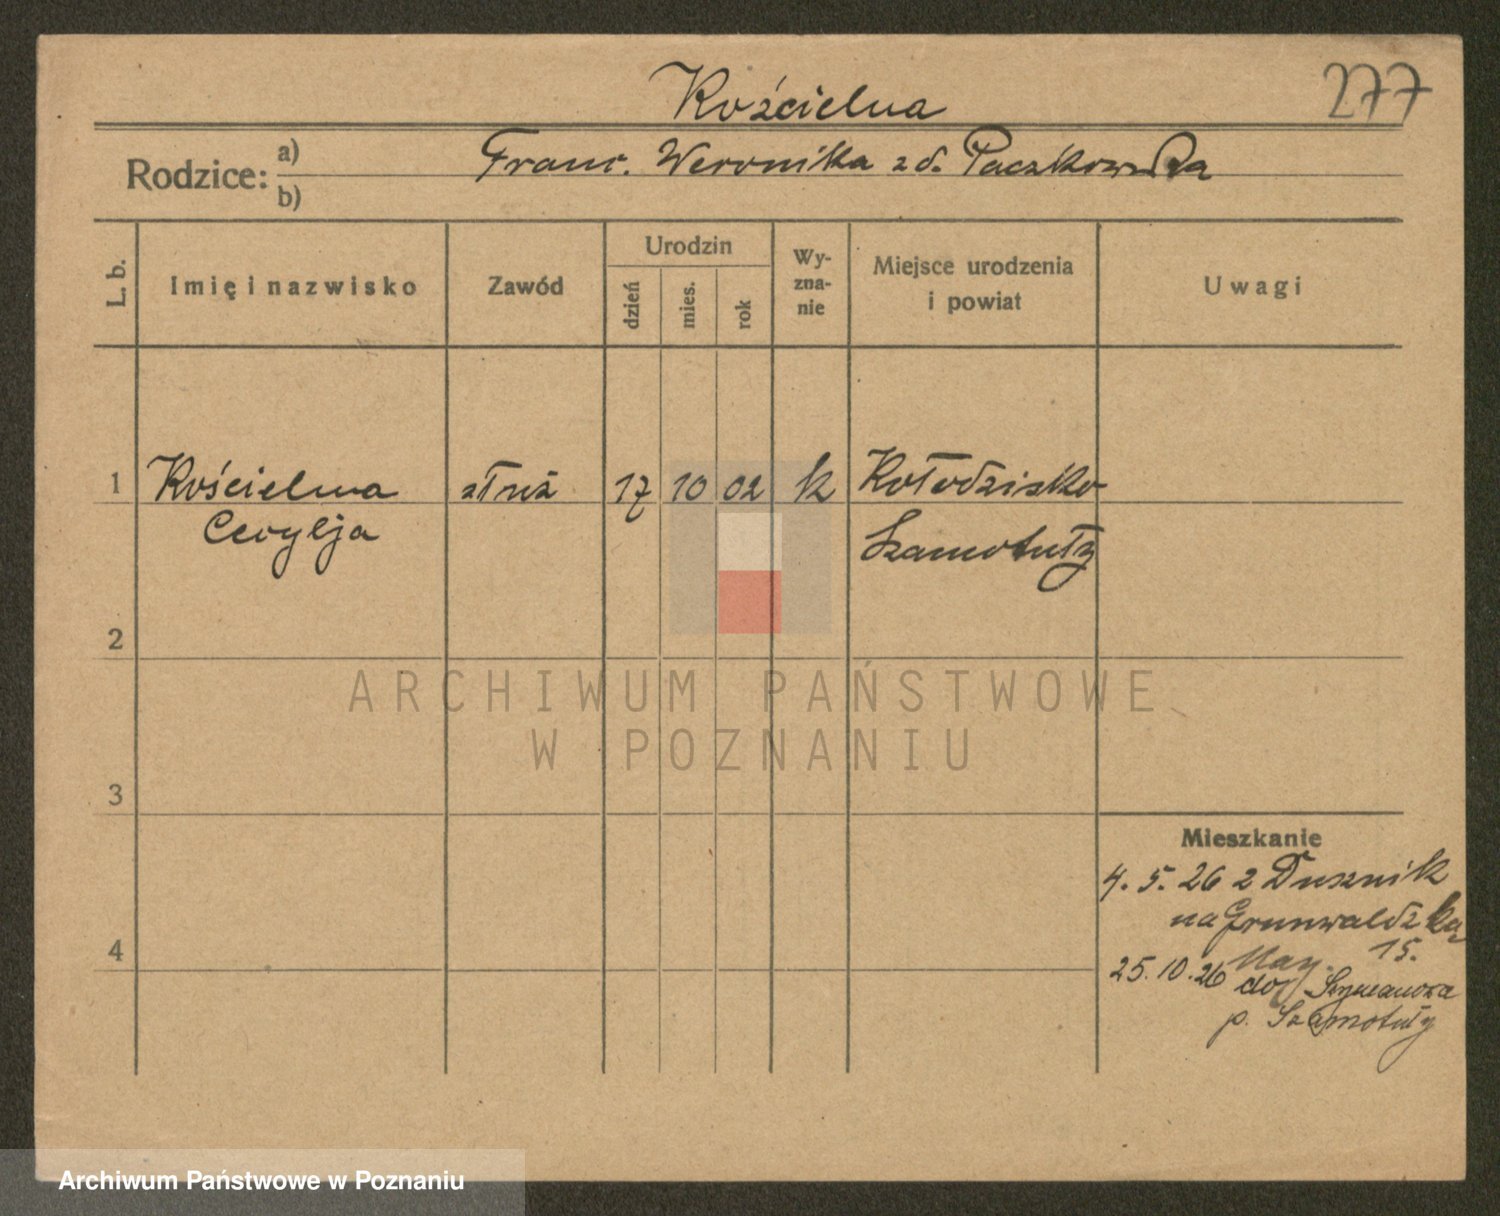 277
Kościelna
Rodzice: a) b) Franc. Weronika z d. Paczkowska
L. b.
Imię i nazwisko
Zawód
Urodzin
dzień
mies.
rok
Wy-
zna-
nie
Miejsce urodzenia
i powiat
Uwagi
1 Kościelna służ 17 10 02 k Kołodzisko
Cecylja Szamotuły
2
ARCHIWUM PAŃSTWOWE
W POZNANIU
3
Mieszkanie
4. 5. 26 z Dusznik
na Grunwaldzką
15.
4
25. 10. 26
do
p. Szamotuły
Archiwum Państwowe w Poznaniu